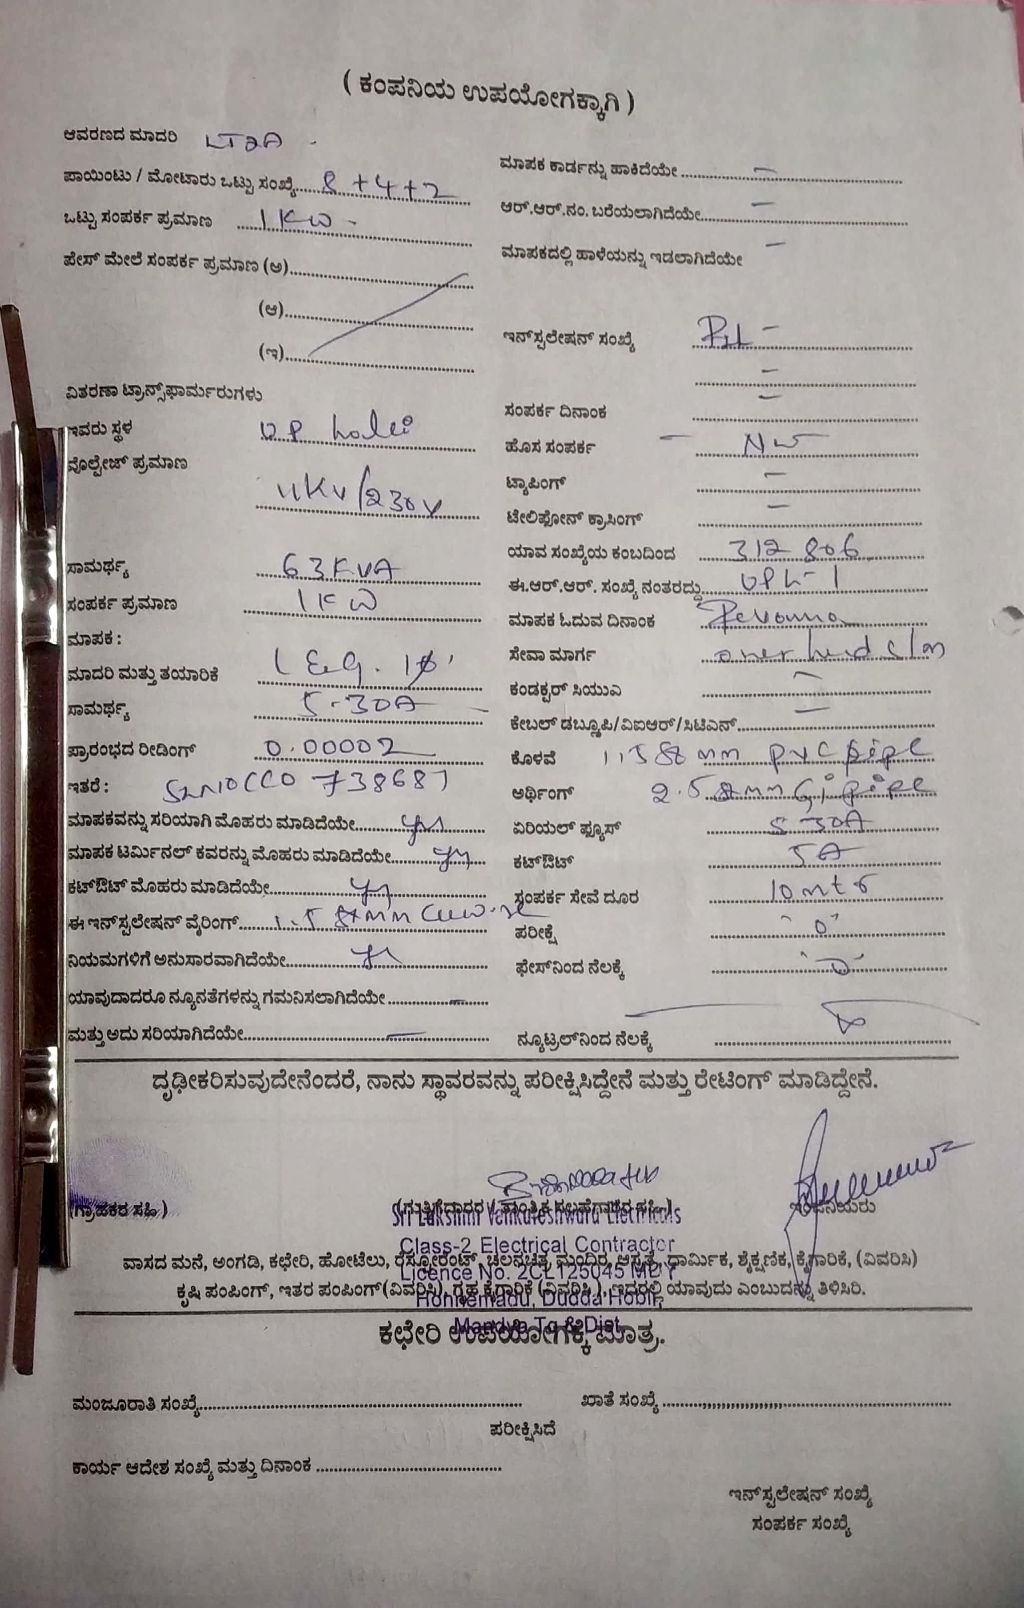 ( ಕಂಪನಿಯ ಉಪಯೋಗಕ್ಕಾಗಿ )
ಆವರಣದ ಮಾದರಿ LT2A
ಪಾಯಿಂಟು / ಮೋಟಾರು ಒಟ್ಟು ಸಂಖ್ಯೆ..... 8 + 4 + 2
ಒಟ್ಟು ಸಂಪರ್ಕ ಪ್ರಮಾಣ 1 KW -
ಪೇಸ್ ಮೇಲೆ ಸಂಪರ್ಕ ಪ್ರಮಾಣ (ಅ)
(ಆ)
(ಇ)
ವಿತರಣಾ ಟ್ರಾನ್ಸ್‌ಫಾರ್ಮರುಗಳು
ಇವರು ಸ್ಥಳ
ವೊಲ್ಟೇಜ್ ಪ್ರಮಾಣ
11KV/230V
ಸಾಮರ್ಥ್ಯ 63KVA
ಸಂಪರ್ಕ ಪ್ರಮಾಣ 1KW
ಮಾಪಕ :
ಮಾದರಿ ಮತ್ತು ತಯಾರಿಕೆ
ಸಾಮರ್ಥ್ಯ 5-30A
ಪ್ರಾರಂಭದ ರೀಡಿಂಗ್ 0.00002
ಇತರೆ : 738687
ಮಾಪಕವನ್ನು ಸರಿಯಾಗಿ ಮೊಹರು ಮಾಡಿದೆಯೇ..... yes
ಮಾಪಕ ಟರ್ಮಿನಲ್ ಕವರನ್ನು ಮೊಹರು ಮಾಡಿದೆಯೇ..... yes
ಕಟ್‌ಔಟ್ ಮೊಹರು ಮಾಡಿದೆಯೇ..... yes
ಈ ಇನ್‌ಸ್ಟಲೇಷನ್ ವೈರಿಂಗ್.....
ನಿಯಮಗಳಿಗೆ ಅನುಸಾರವಾಗಿದೆಯೇ..... yes
ಯಾವುದಾದರೂ ನ್ಯೂನತೆಗಳನ್ನು ಗಮನಿಸಲಾಗಿದೆಯೇ ..... —
ಮತ್ತು ಅದು ಸರಿಯಾಗಿದೆಯೇ..... —
ಮಾಪಕ ಕಾರ್ಡನ್ನು ಹಾಕಿದೆಯೇ ..... —
ಆರ್.ಆರ್.ನಂ. ಬರೆಯಲಾಗಿದೆಯೇ..... —
ಮಾಪಕದಲ್ಲಿ ಹಾಳೆಯನ್ನು ಇಡಲಾಗಿದೆಯೇ —
ಇನ್‌ಸ್ಟಲೇಷನ್ ಸಂಖ್ಯೆ
ಸಂಪರ್ಕ ದಿನಾಂಕ —
ಹೊಸ ಸಂಪರ್ಕ —
ಟ್ಯಾಪಿಂಗ್ —
ಟೇಲಿಫೋನ್ ಕ್ರಾಸಿಂಗ್ —
ಯಾವ ಸಂಖ್ಯೆಯ ಕಂಬದಿಂದ 312806
ಈ.ಆರ್.ಆರ್. ಸಂಖ್ಯೆ ನಂತರದ್ದು.....
ಮಾಪಕ ಓದುವ ದಿನಾಂಕ
ಸೇವಾ ಮಾರ್ಗ
ಕಂಡಕ್ಟರ್ ಸಿಯುಎ —
ಕೇಬಲ್ ಡಬ್ಲೂಪಿ/ವಿಐಆರ್/ಸಿಟಿಎನ್..... —
ಕೊಳವೆ mm pvc pipe
ಅರ್ಥಿಂಗ್ mm Gi pipe
ಏರಿಯಲ್ ಫ್ಯೂಸ್ 5-30A
ಕಟ್‌ಔಟ್ 5A
ಸಂಪರ್ಕ ಸೇವೆ ದೂರ 10 mtr
ಪರೀಕ್ಷೆ '0'
ಫೇಸ್‌ನಿಂದ ನೆಲಕ್ಕೆ '0'
ನ್ಯೂಟ್ರಲ್‌ನಿಂದ ನೆಲಕ್ಕೆ
ದೃಢೀಕರಿಸುವುದೇನೆಂದರೆ, ನಾನು ಸ್ಥಾವರವನ್ನು ಪರೀಕ್ಷಿಸಿದ್ದೇನೆ ಮತ್ತು ರೇಟಿಂಗ್ ಮಾಡಿದ್ದೇನೆ.
(ಗ್ರಾಹಕರ ಸಹಿ )
(ಗುತ್ತಿಗೆದಾರರ / ತಾಂತ್ರಿಕ ಸಲಹೆಗಾರರ ಸಹಿ)
Sri Lakshmi Venkateshwara Electricals
Class-2 Electrical Contractor
Licence No. 2CL125045 MDY
Honnemadu, Dudda Hobli,
Mandya Tq & Dist.
ವಾಸದ ಮನೆ, ಅಂಗಡಿ, ಕಛೇರಿ, ಹೋಟೆಲು, ರೆಸ್ಟೋರೆಂಟ್, ಚಲನಚಿತ್ರ ಮಂದಿರ, ಆಸ್ಪತ್ರೆ, ಧಾರ್ಮಿಕ, ಶೈಕ್ಷಣಿಕ, ಕೈಗಾರಿಕೆ, (ವಿವರಿಸಿ)
ಕೃಷಿ ಪಂಪಿಂಗ್, ಇತರ ಪಂಪಿಂಗ್ (ವಿವರಿಸಿ), ಗೃಹ ಕೈಗಾರಿಕೆ (ವಿವರಿಸಿ ), ಇದರಲ್ಲಿ ಯಾವುದು ಎಂಬುದನ್ನು ತಿಳಿಸಿರಿ.
ಕಛೇರಿ ಉಪಯೋಗಕ್ಕೆ ಮಾತ್ರ.
ಮಂಜೂರಾತಿ ಸಂಖ್ಯೆ..... ಖಾತೆ ಸಂಖ್ಯೆ .....
ಪರೀಕ್ಷಿಸಿದೆ
ಕಾರ್ಯ ಆದೇಶ ಸಂಖ್ಯೆ ಮತ್ತು ದಿನಾಂಕ .....
ಇನ್‌ಸ್ಟಲೇಷನ್ ಸಂಖ್ಯೆ
ಸಂಪರ್ಕ ಸಂಖ್ಯೆ